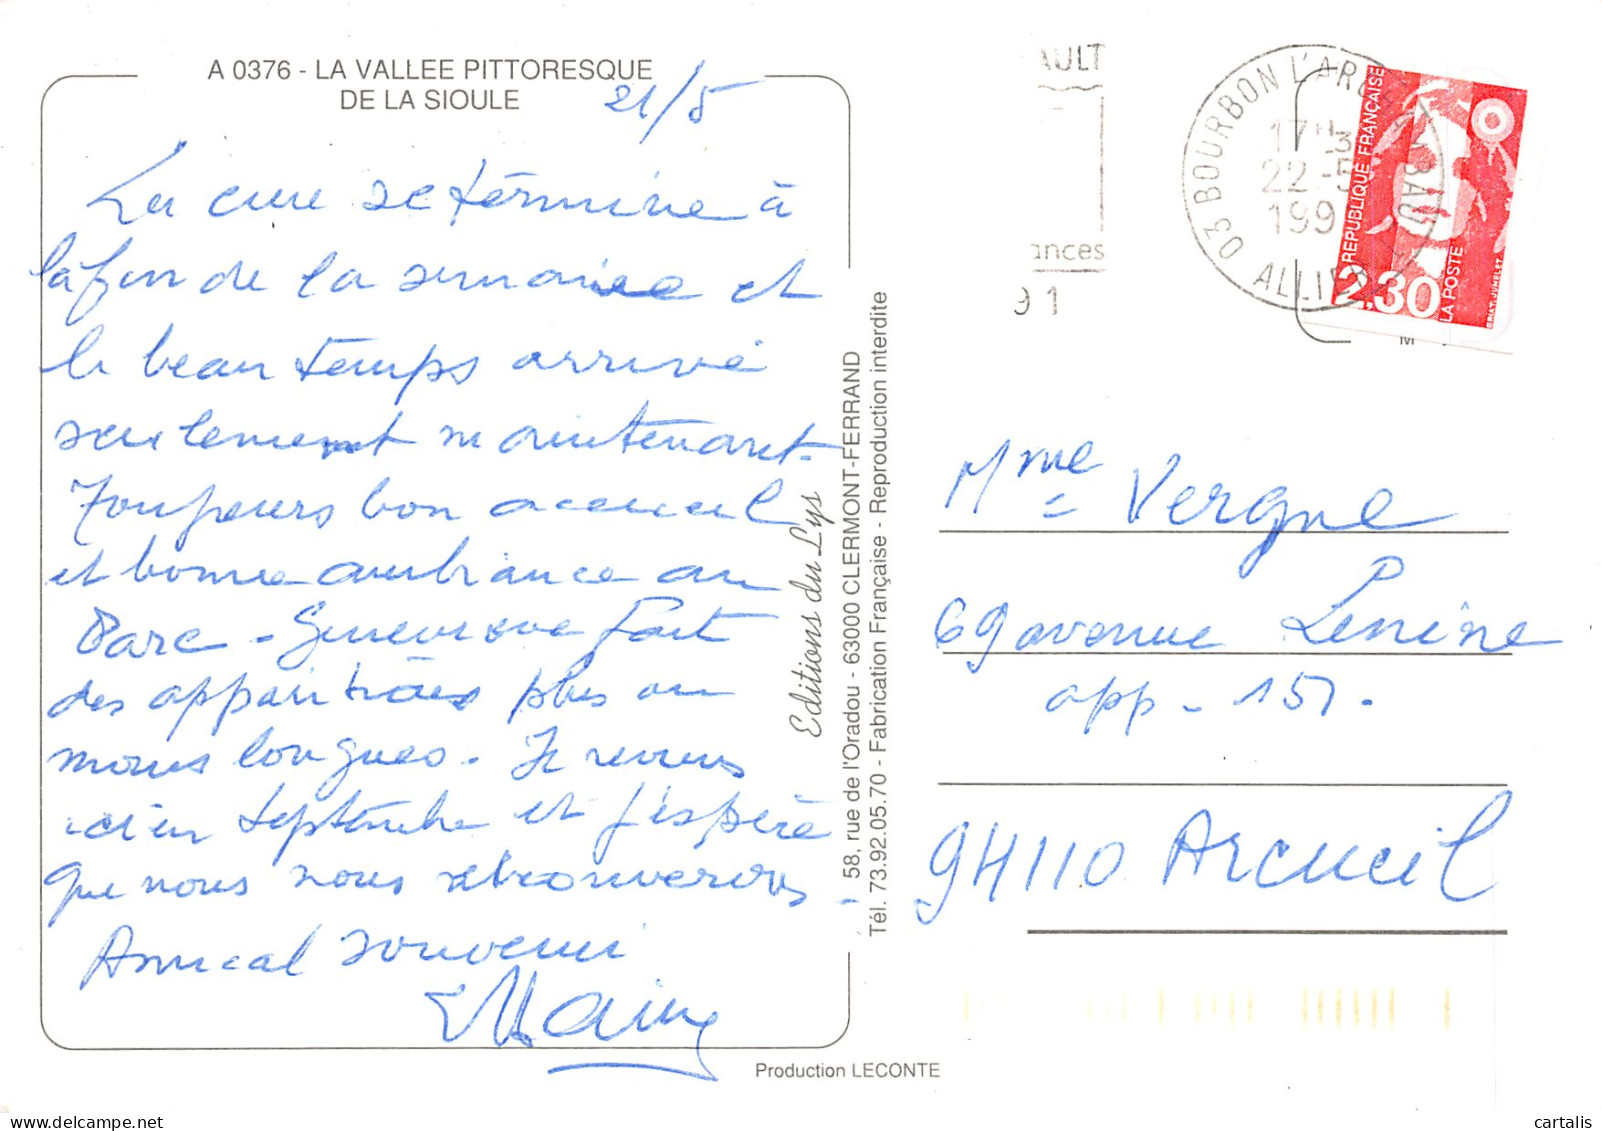 A 0376 - LA VALLEE PITTORESQUE
DE LA SIOULE
21/5
La cure se termine à
la fin de la semaine et
le beau temps arrivé
seulement maintenant.
Toujours bon accueil
et bonne ambiance au
Parc - Geneviève fait
des apparitions plus ou
moins longues. Je reviens
ici en septembre et j'espère
que nous nous retrouverons
Amical souvenir
Editions du Lys
58, rue de l'Oradou - 63000 CLERMONT-FERRAND
Tél. 73.92.05.70 - Fabrication Française - Reproduction interdite
Production LECONTE
AULT
ances
91
03 BOURBON L'ARCHAMBAULT
17H3
22-5
199
ALLIER
REPUBLIQUE FRANÇAISE
2,30
LA POSTE
BRIAT. JUMELET
M
Mme Vergne
69 avenue Lénine
app - 151.
94110 Arcueil
cartalis